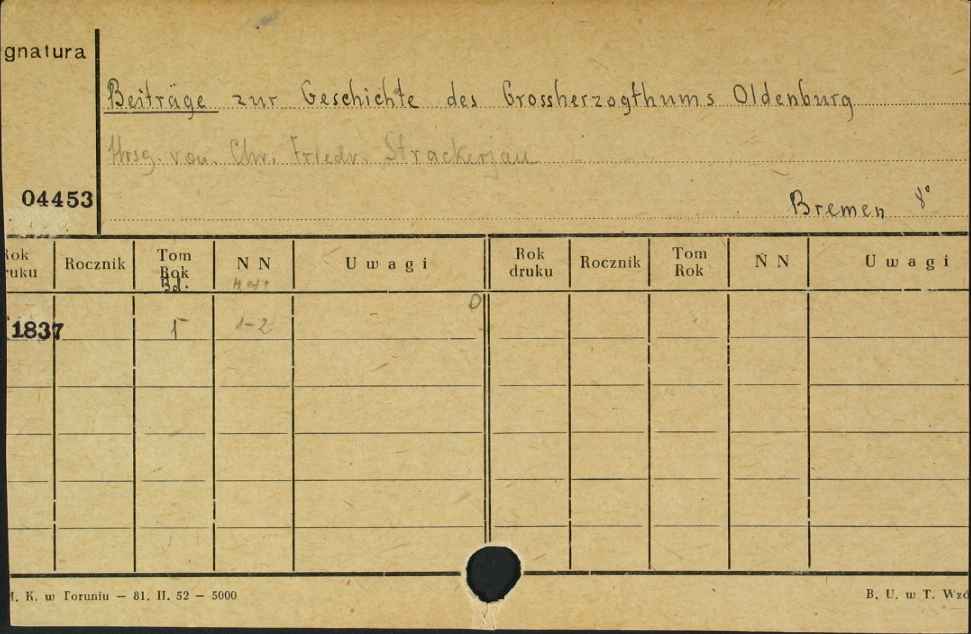 gnatura
Beiträge zur Geschichte des Grossherzogthums Oldenburg
Hrsg. von. Chr. Friedr. Strackerjan
04453
Bremen 8°
Rok druku Rocznik Tom Rok Bd. N N Heft Uwagi Rok druku Rocznik Tom Rok N N Uwagi
1837 1 1-2
K. w Toruniu – 81. II. 52 – 5000
B. U. w T. Wzó